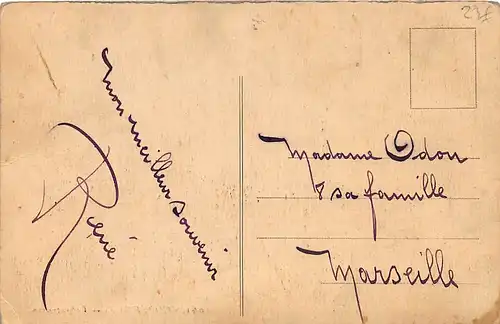 Mon meilleur souvenir
René
Madame Odon
& sa famille
Marseille